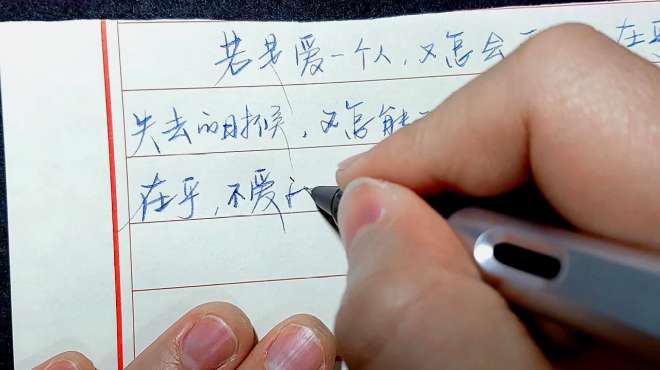 若是爱一个人，又怎会 在乎
失去的时候，又怎能
在乎，不爱